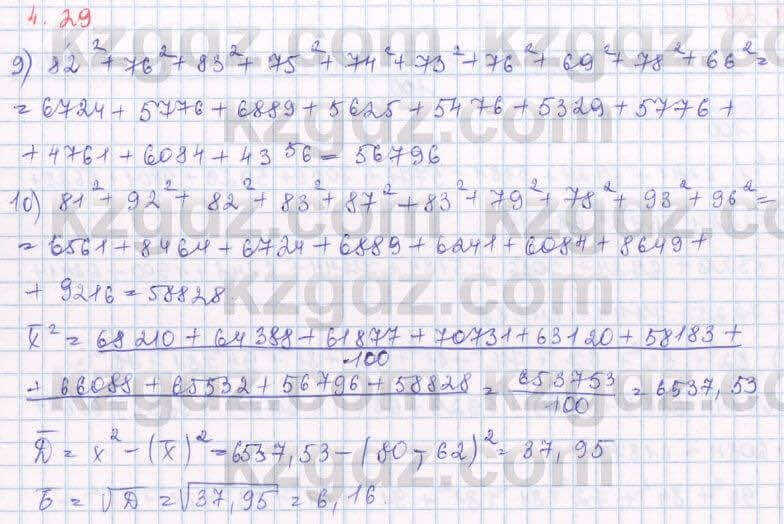 4.29
9) 82² + 76² + 83² + 75² + 74² + 73² + 76² + 69² + 78² + 66² =
= 6724 + 5776 + 6889 + 5625 + 5476 + 5329 + 5776 +
+ 4761 + 6084 + 4356 = 56796
10) 81² + 92² + 82² + 83² + 87² + 83² + 79² + 78² + 93² + 96² =
= 6561 + 8464 + 6724 + 6889 + 6241 + 6084 + 8649 +
+ 9216 = 58828.
x̄² = 68210 + 64388 + 61877 + 70731 + 63120 + 58183 +
100
+ 66088 + 65532 + 56796 + 58828 = 653753/100 = 6537,53
D̄ = x² - (x̄)² = 6537,53 - (80,62)² = 37,95
σ̄ = √D = √37,95 = 6,16.
kzgdz.com